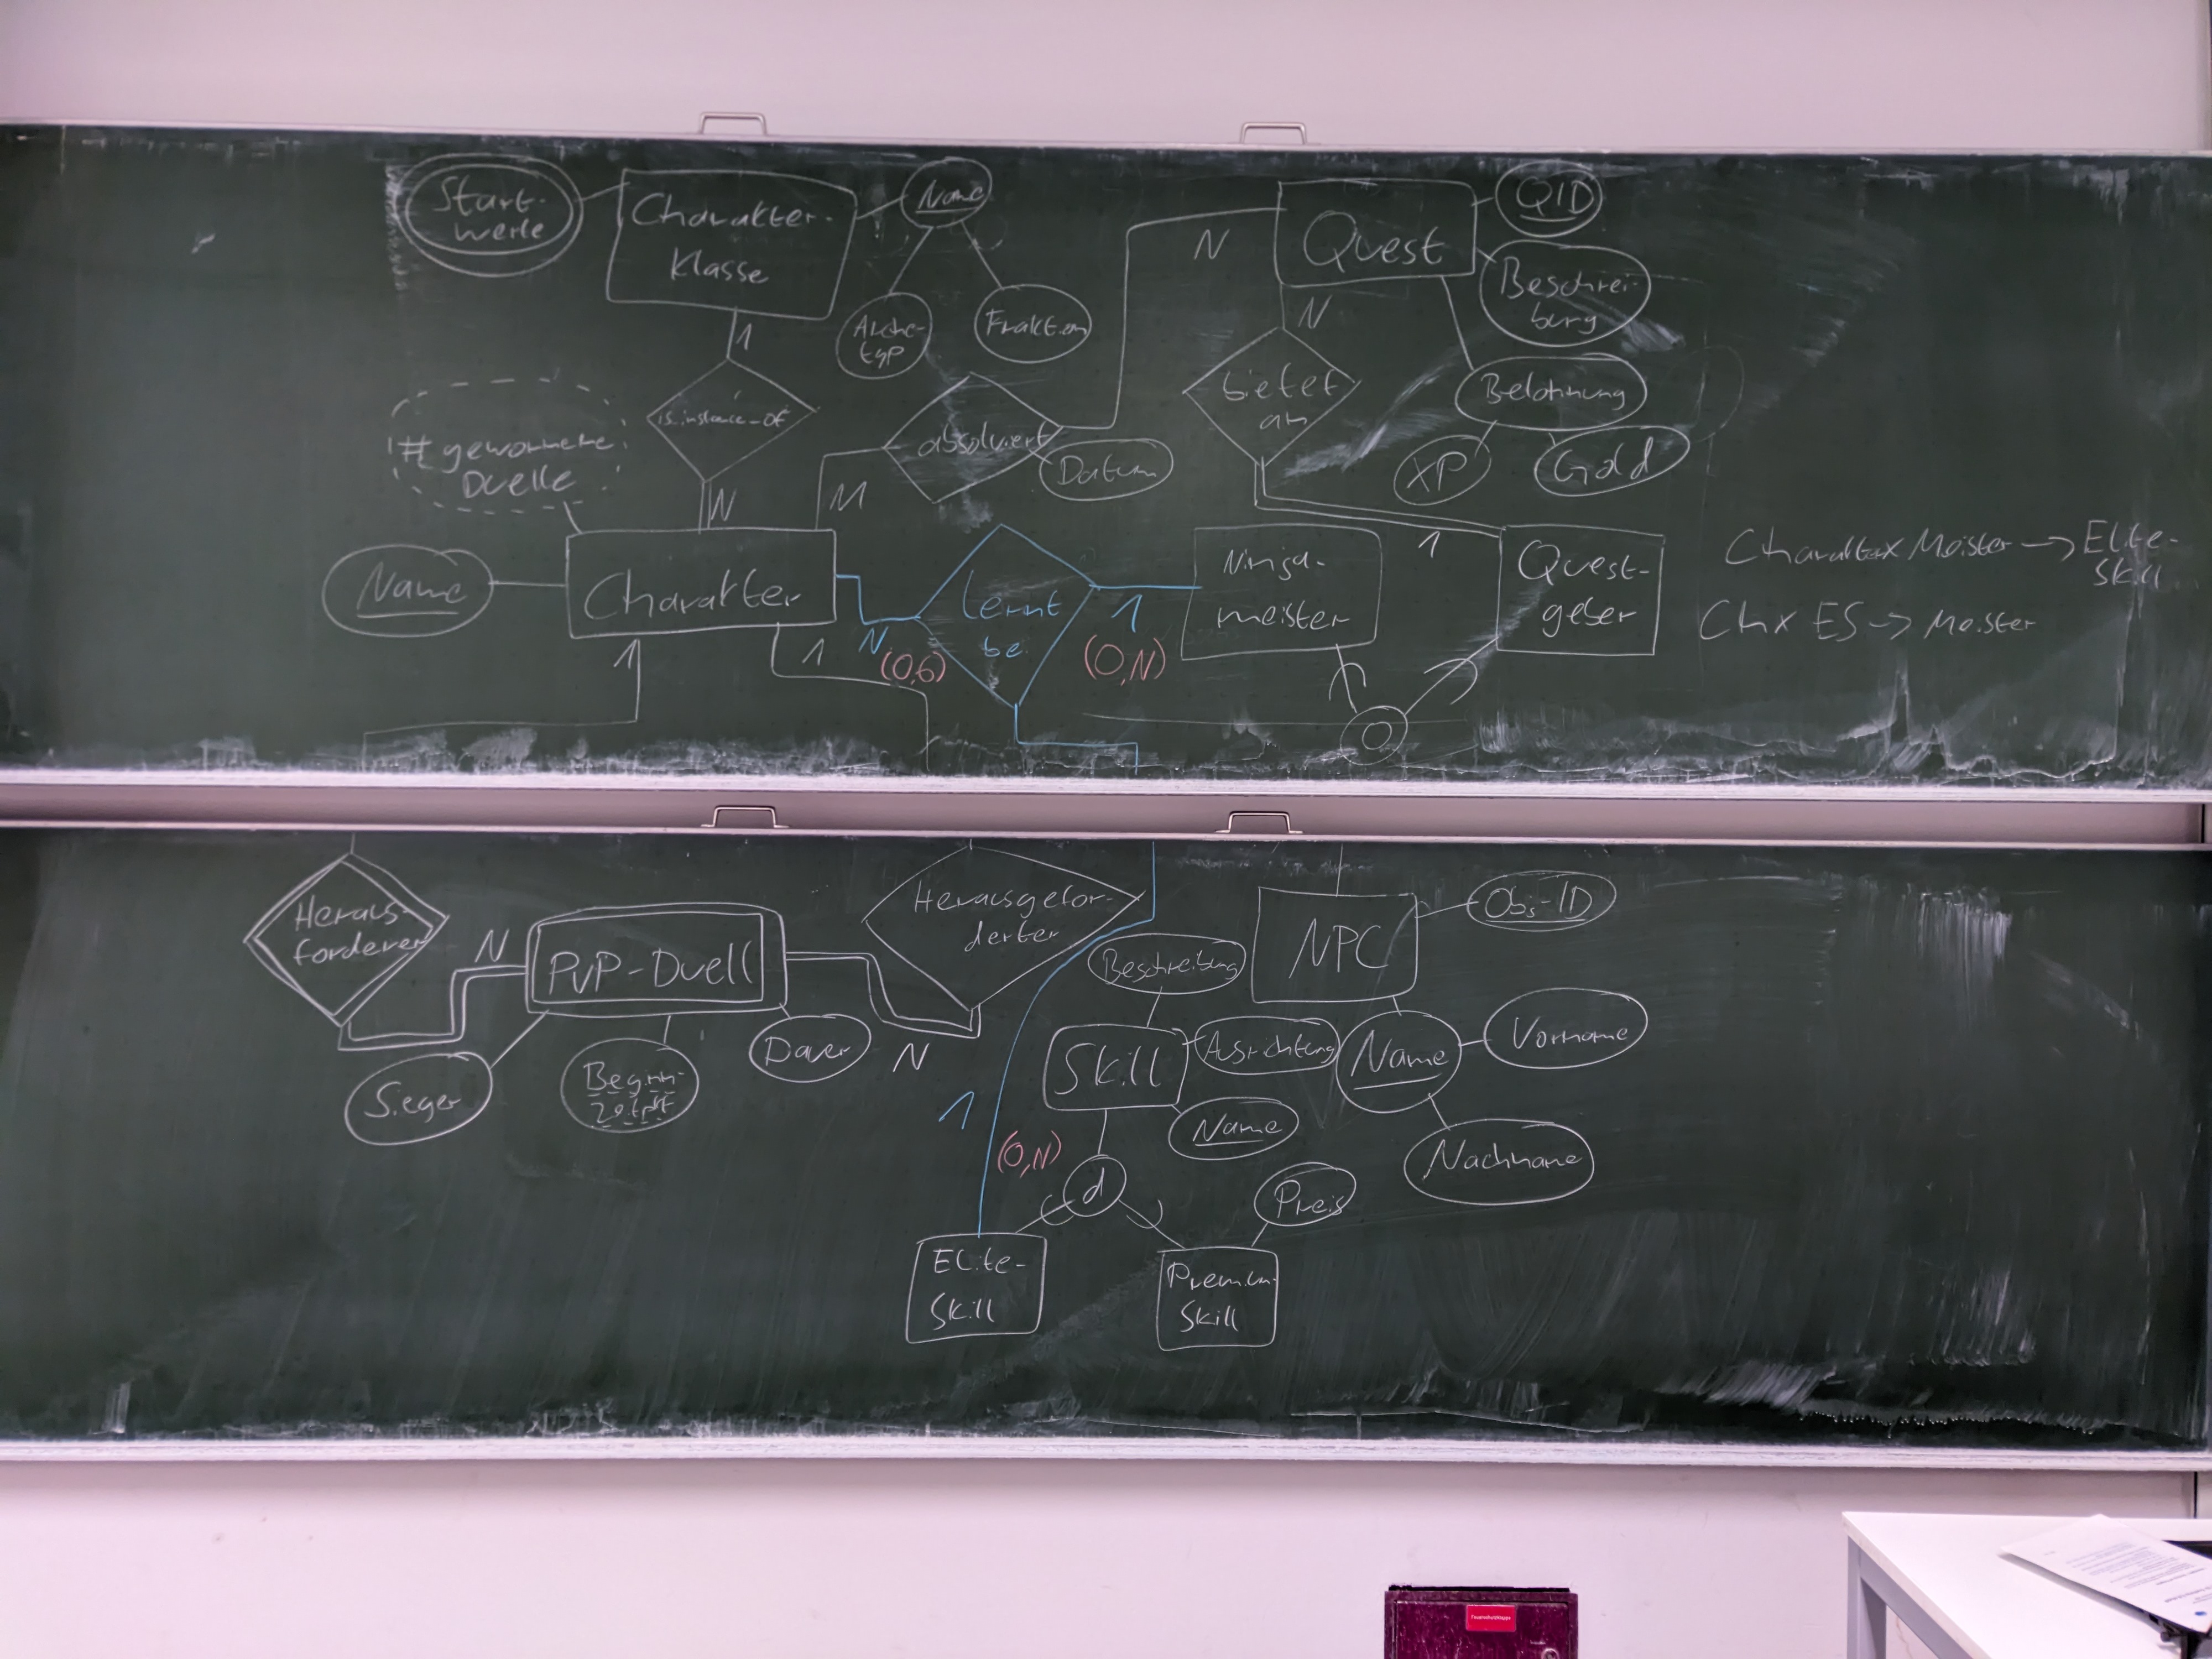 Start-
werte
Charakter-
Klasse
Name
Arche-
typ
Fraktion
1
is_instance_of
N
# gewonnene
Duelle
Name
Charakter
M
absolviert
Datum
N
Quest
QID
Beschrei-
bung
Belohnung
XP
Gold
N
bietet
an
1
Ninja-
meister
Quest-
geber
lernt
bei
N
(0,6)
1
(0,N)
1
1
Charakter x Meister -> Elite-
Skill
Ch x ES -> Meister
Heraus-
forderer
N
PvP-Duell
Sieger
Beginn-
zeitpkt
Dauer
Herausgefor-
derter
N
1
(0,N)
Beschreibung
Skill
Ausrichtung
Name
d
Elite-
Skill
Premium-
Skill
Preis
NPC
Obj-ID
Name
Vorname
Nachname